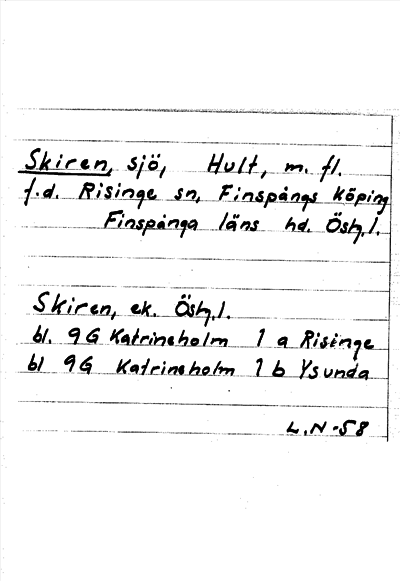 Skiren, sjö, Hult, m. fl.
f.d. Risinge sn, Finspångs köping
Finspånga läns hd. Östg.l.
Skiren, ek. Östg.l.
bl. 9G Katrineholm 1 a Risinge
bl 9G Katrineholm 1 b Ysunda
L.N-58